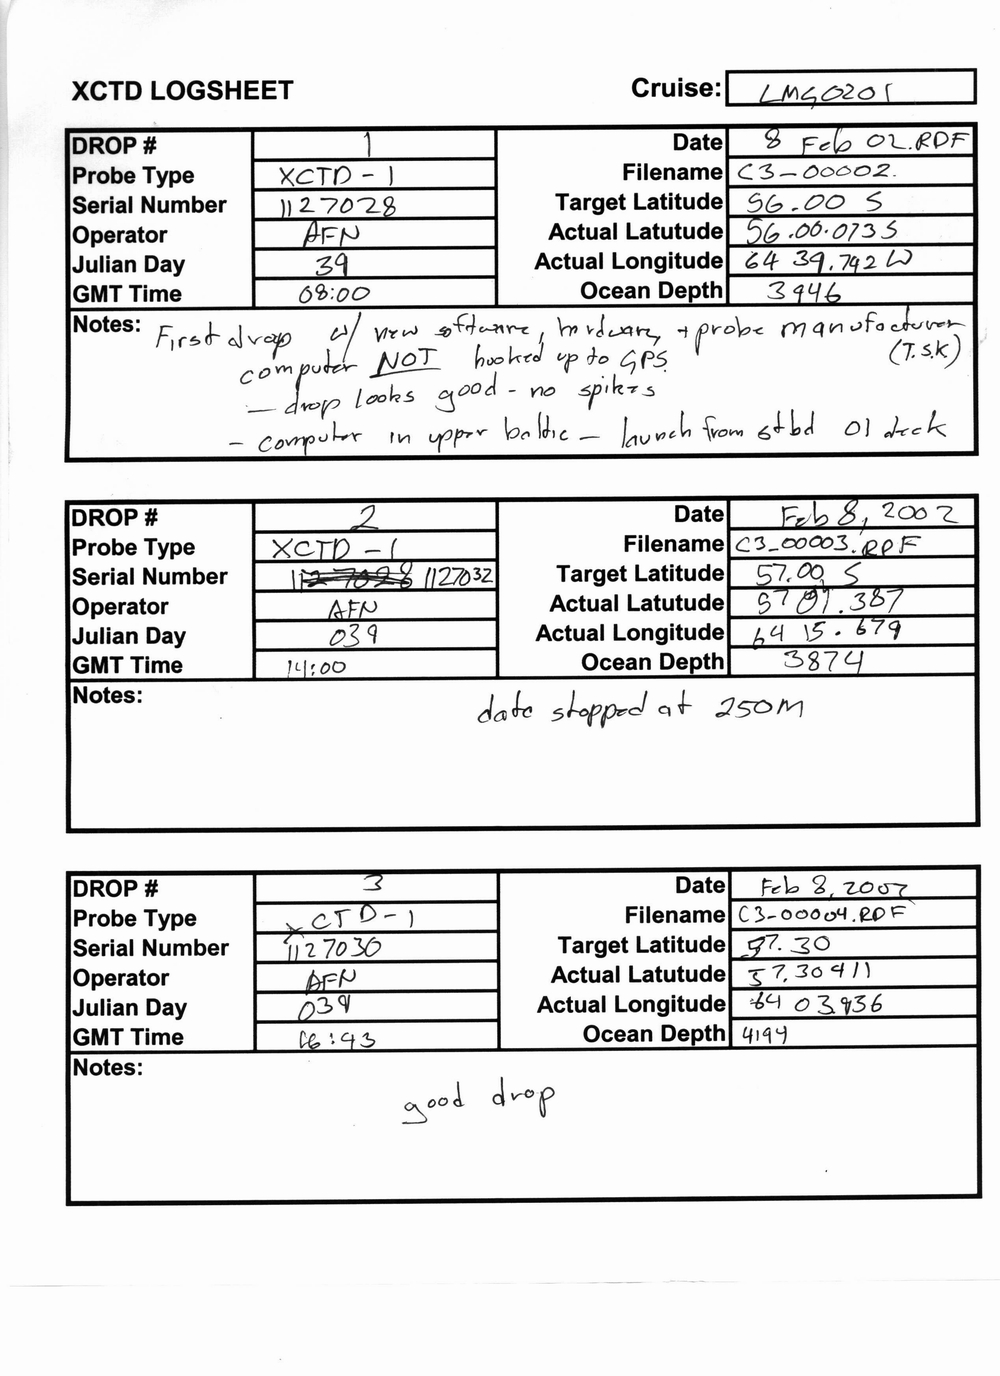 XCTD LOGSHEET Cruise: LMG0201
DROP # 1 Date 8 Feb 02.RDF
Probe Type XCTD-1 Filename C3-00002.
Serial Number 1127028 Target Latitude 56.00 S
Operator AFN Actual Latutude 56.00.073S
Julian Day 39 Actual Longitude 64 39.742 W
GMT Time 08:00 Ocean Depth 3946
Notes: First drop w/ new software, hardware, + probe manufacturer
computer NOT hooked up to GPS (T.S.K)
- drop looks good - no spikes
- computer in upper baltic - launch from stbd 01 deck
DROP # 2 Date Feb 8, 2002
Probe Type XCTD-1 Filename C3-00003.RDF
Serial Number 1127028 1127032 Target Latitude 57.00 S
Operator AFN Actual Latutude 57 01.387
Julian Day 039 Actual Longitude 64 15.679
GMT Time 14:00 Ocean Depth 3874
Notes: data stopped at 250M
DROP # 3 Date Feb 8, 2002
Probe Type XCTD-1 Filename C3-00004.RDF
Serial Number 1127030 Target Latitude 57.30
Operator AFN Actual Latutude 57.30411
Julian Day 039 Actual Longitude 64 03.936
GMT Time 16:43 Ocean Depth 4194
Notes:
good drop